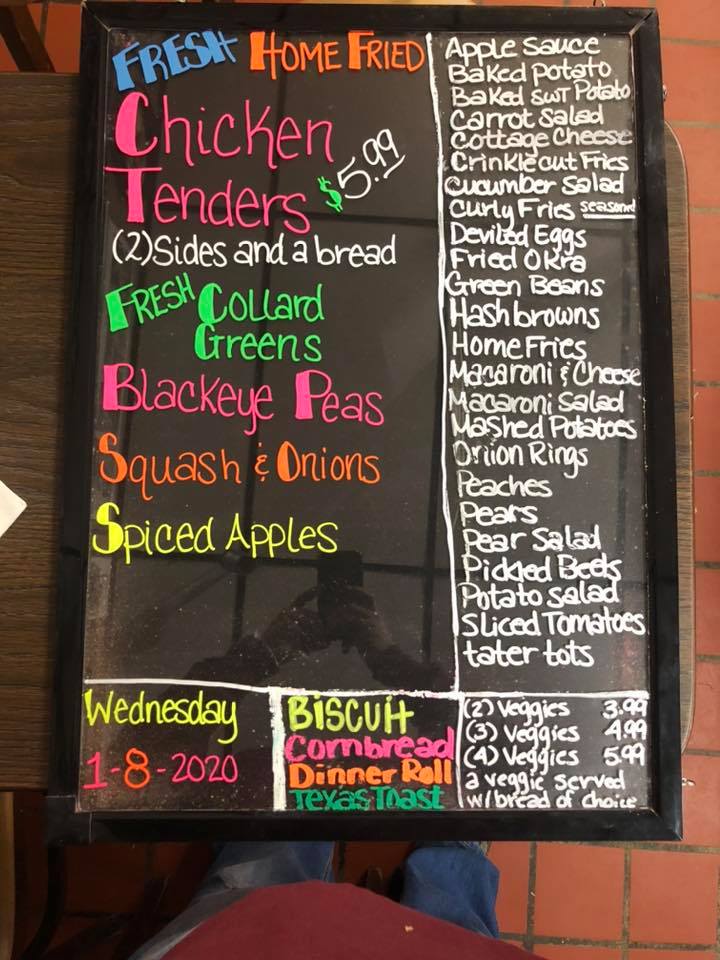 FRESH HOME FRIED
Chicken
Tenders $5.99
(2) Sides and a bread
FRESH Collard
Greens
Blackeye Peas
Squash & Onions
Spiced Apples
Apple Sauce
Baked Potato
Baked SWT Potato
Carrot Salad
Cottage Cheese
Crinkle cut Fries
Cucumber Salad
Curly Fries seasond
Deviled Eggs
Fried Okra
Green Beans
Hashbrowns
Home Fries
Macaroni & Cheese
Macaroni Salad
Mashed Potatoes
Onion Rings
Peaches
Pears
Pear Salad
Pickled Beets
Potato Salad
Sliced Tomatoes
tater tots
Wednesday
1-8-2020
BiSCUit
Cornbread
Dinner Roll
Texas Toast
(2) Veggies 3.99
(3) Veggies 4.99
(4) Veggies 5.99
a veggie served
w/bread of choice